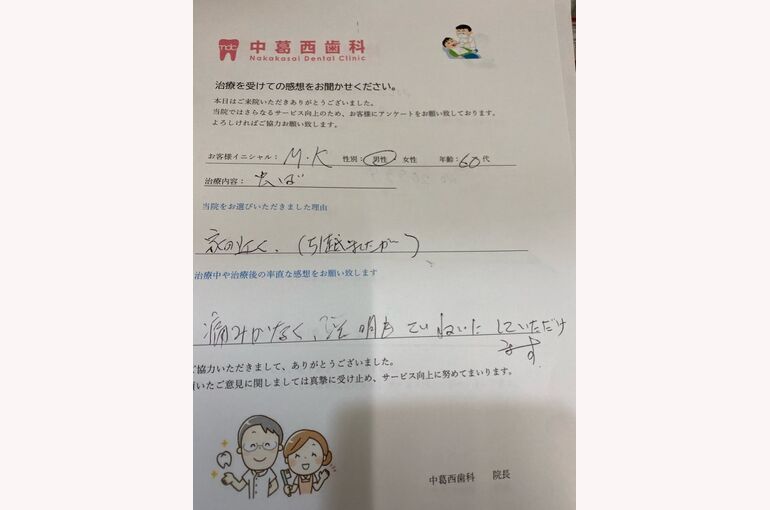 mdc
中葛西歯科
Nakakasai Dental Clinic
治療を受けての感想をお聞かせください。
本日はご来院いただきありがとうございました。
当院ではさらなるサービス向上のため、お客様にアンケートをお願い致しております。
よろしければご協力お願い致します。
お客様イニシャル： M・K 性別： 男性 女性 年齢：60代
治療内容： むし歯
当院をお選びいただきました理由
家の近く、（引越ましたが）
治療中や治療後の率直な感想をお願い致します
痛みがなく、説明もていねいにしていただけ
ます。
ご協力いただきまして、ありがとうございました。
頂いたご意見に関しましては真摯に受け止め、サービス向上に努めてまいります。
中葛西歯科 院長